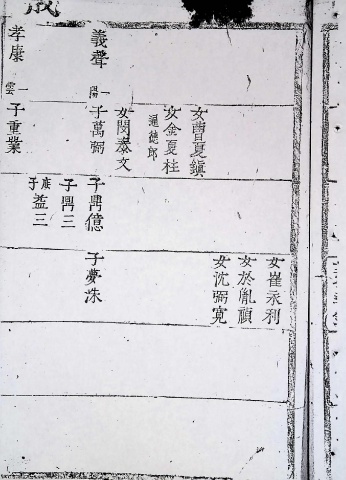 義聲
一陽
孝康
一雲
女曺夏鎭
女金夏柱
通德郎
女閔泰文
子萬弼
子重業
子鼎億
子鼎三
庶子益三
女崔永利
女於胤禎
女沈弼寬
子夢洙